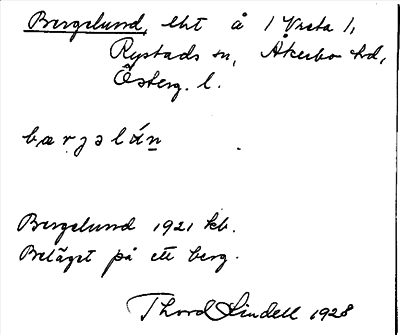 Bergelund, lht å 1 Vreta 1,
Rystads sn, Åkerbo hd,
Österg. l.
bærgəlún
Bergelund 1921 kb.
Beläget på ett berg.
Thord Lindell 1928